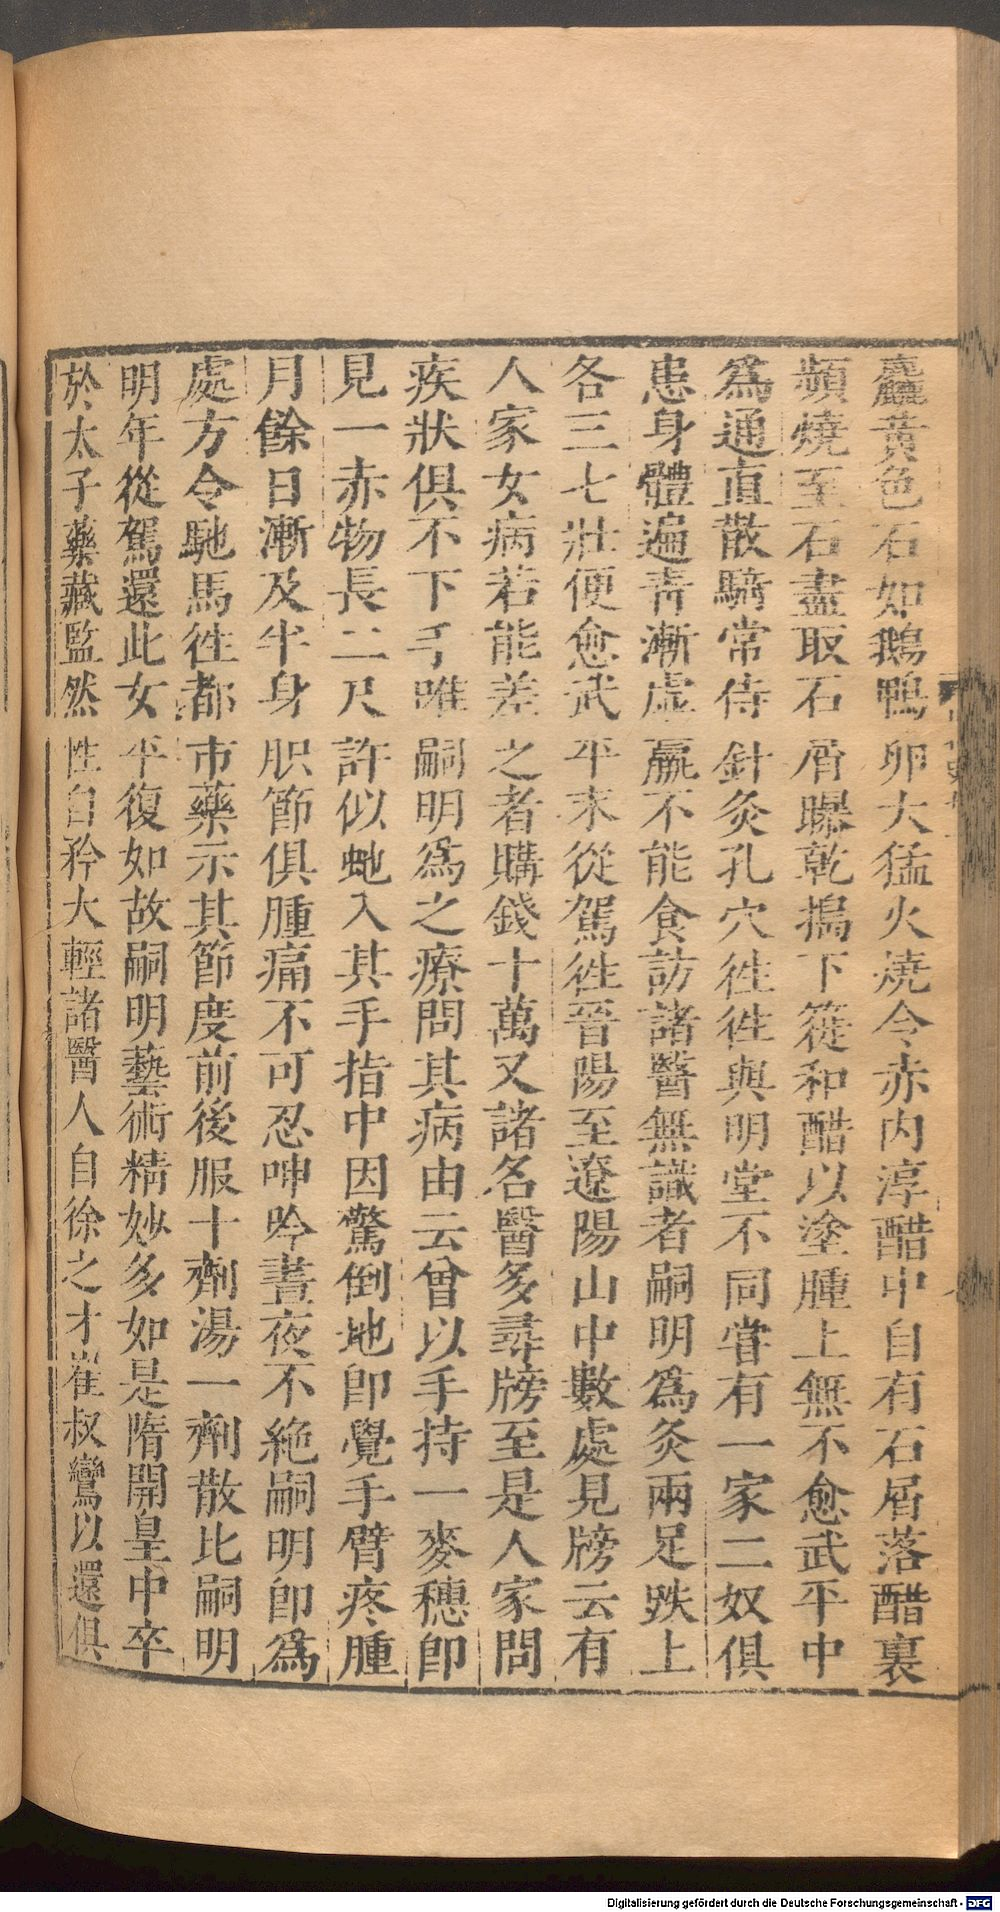 麤黃色石如鵝鴨卵大猛火燒令赤內淳醋中自有石屑落醋裏
頻燒至石盡取石屑曝乾擣下簁和醋以塗腫上無不愈武平中
爲通直散騎常侍針灸孔穴徃徃與明堂不同嘗有一家二奴俱
患身體遍青漸虛羸不能食訪諸醫無識者嗣明爲灸兩足趺上
各三七壯便愈武平末從駕徃晉陽至遼陽山中數處見牓云有
人家女病若能差之者購錢十萬又諸名醫多尋牓至是人家問
疾狀俱不下手唯嗣明爲之療問其病由云曾以手持一麥穗卽
見一赤物長二尺許似虵入其手指中因驚倒地卽覺手臂疼腫
月餘日漸及半身肢節俱腫痛不可忍呻吟晝夜不絶嗣明卽爲
處方令馳馬徃都市藥示其節度前後服十劑湯一劑散比嗣明
明年從駕還此女平復如故嗣明藝術精妙多如是隋開皇中卒
於太子藥藏監然性自矜大輕諸醫人自徐之才崔叔鸞以還俱
Digitalisierung gefördert durch die Deutsche Forschungsgemeinschaft - DFG